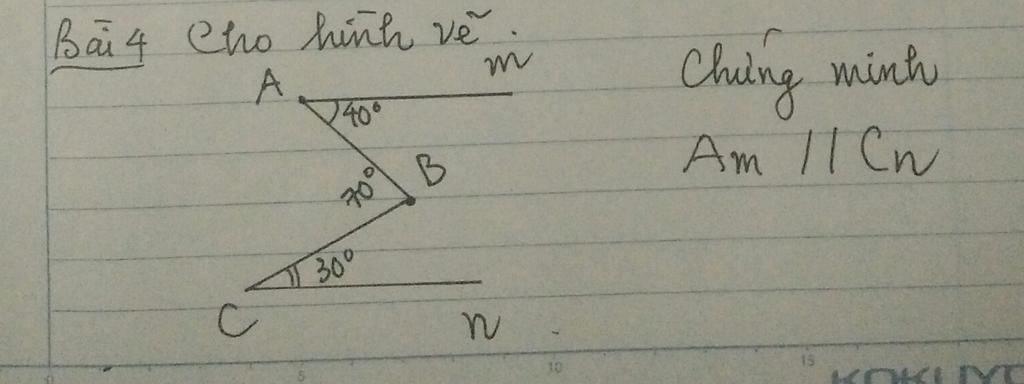 Bài 4 Cho hình vẽ.
A
m
40°
Chứng minh
Am // Cn
B
70°
30°
C
n
5
10
15